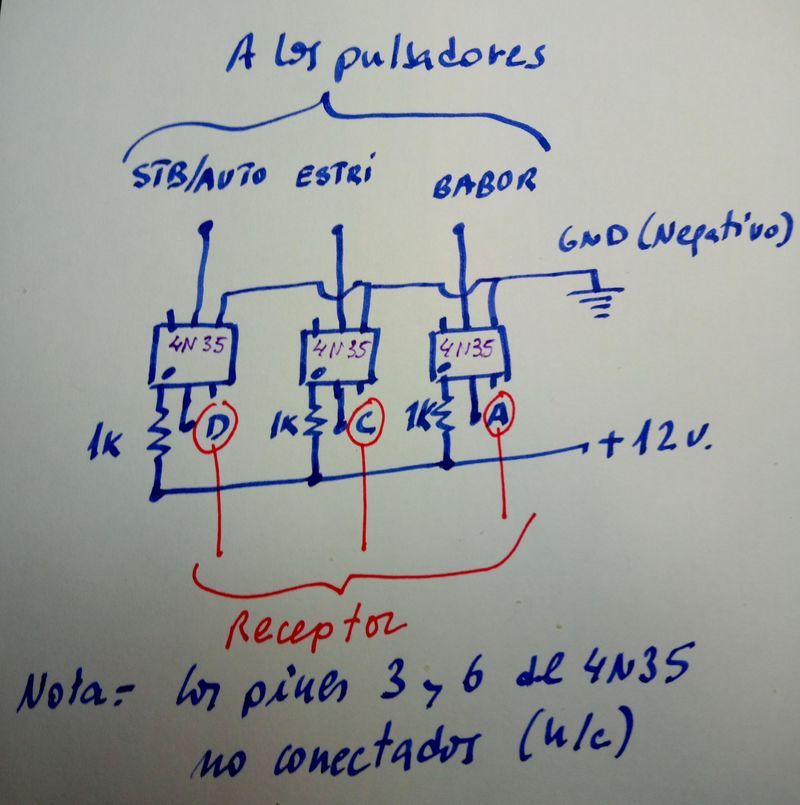 A los pulsadores
STB/AUTO ESTRI BABOR
GND (Negativo)
4N35 4N35 4N35
1K D 1K C 1K A
+12v.
Receptor
Nota= los pines 3 y 6 del 4N35
no conectados (n/c)